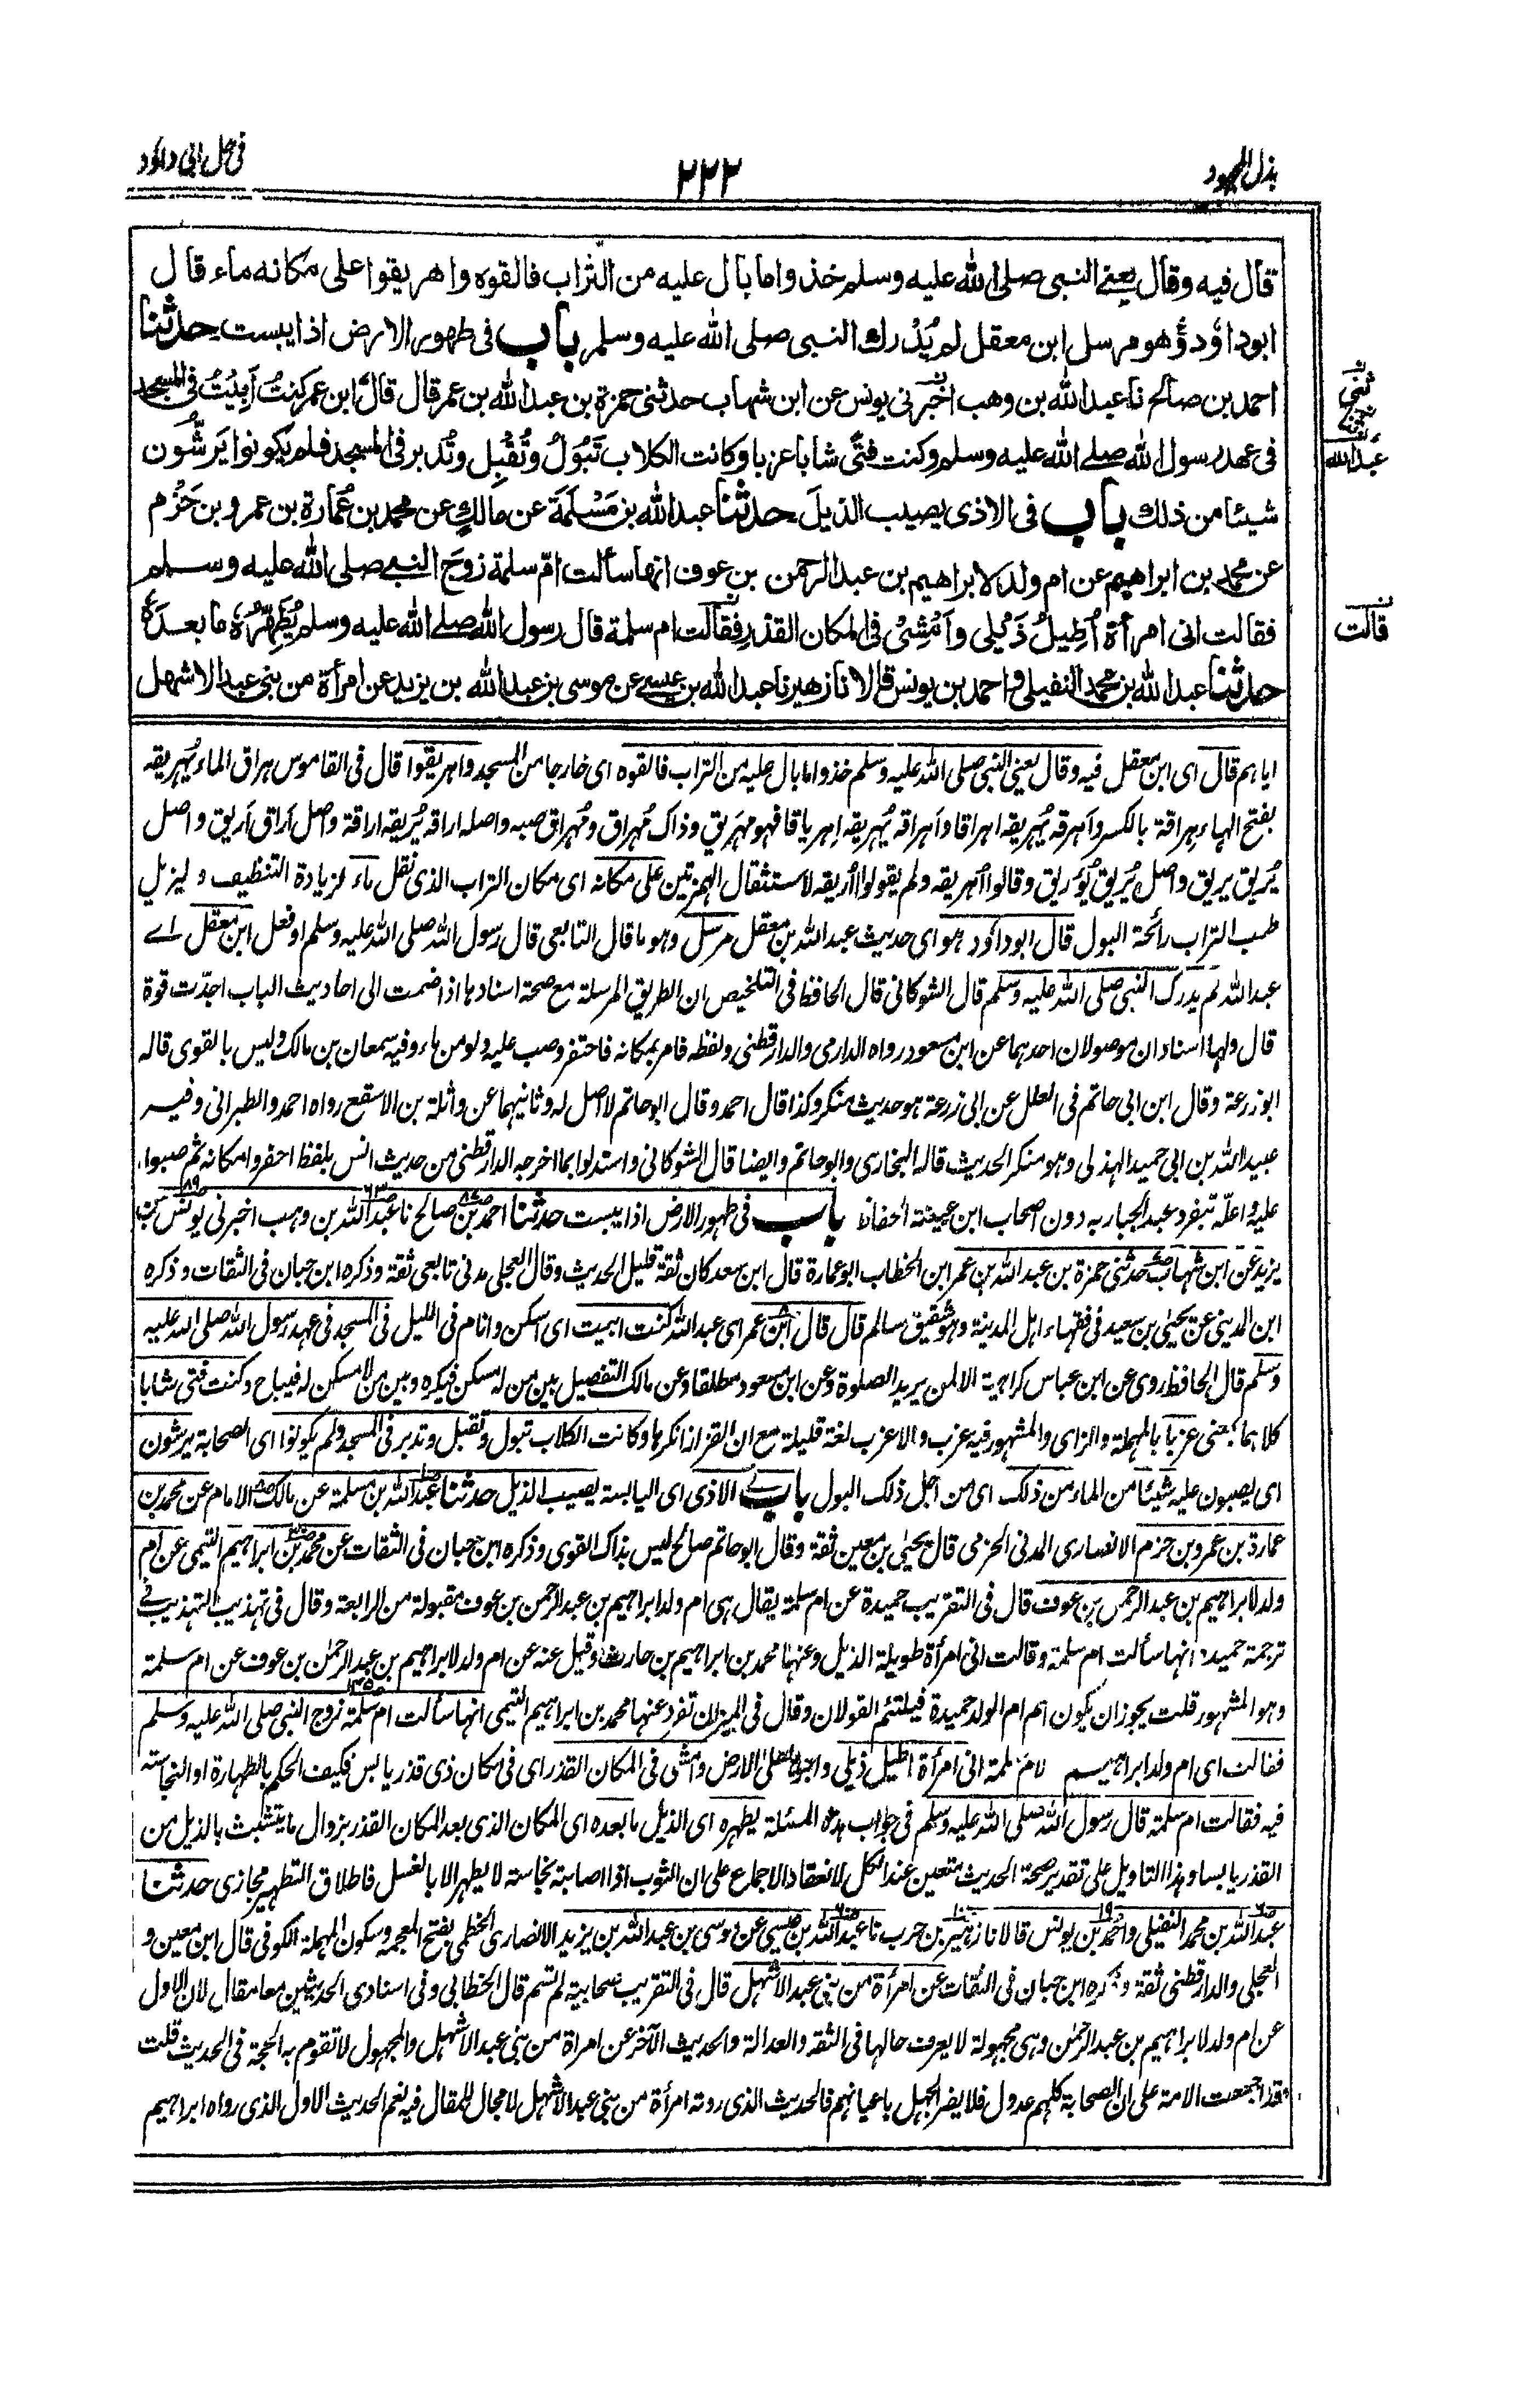 بذل المجهود
٢٢٢
فى حل ابى داؤد
قال فيه وقال يعنى النبى صلى الله عليه وسلم خذوا ما بال عليه من التراب فالقوه واهريقوا على مكانه ماء قال
ابو داؤد وهو مرسل ابن معقل لم يُدْرك النبى صلى الله عليه وسلم باب فى طهور الارض اذا يبست حدثنا
احمد بن صالح نا عبدالله بن وهب اخبرنى يونس عن ابن شهاب حدثنى حمزة بن عبدالله بن عمر قال قال ابن عمر كنتُ اَبِيْتُ فى المسجد
فى عهد رسول الله صلى الله عليه وسلم وكنت فتًى شابا عزبا وكانت الكلاب تَبُوْلُ وتُقْبِل وتُدبر فى المسجد فلم يكونوا يَرشُّون
شيئا من ذلك باب فى الاذى يصيب الذيلَ حدثنا عبدالله بن مَسْلَمَة عن مالكٍ عن محمد بن عُمارة بن عمرو بن حَزْم
عن محمد بن ابراهيم عن ام ولد لابراهيم بن عبدالرحمن بن عوف انها سألت امّ سلمة زوجَ النبى صلى الله عليه وسلم
فقالت انى امرأة اُطِيلُ ذَيلى واَمْشِىْ فى المكان القذر فقالت ام سلمة قال رسول الله صلى الله عليه وسلم يُطَهِّرُهٗ ما بعدَهٗ
حدثنا عبدالله بن محمد النفيلى واحمد بن يونس قالا نا زهير نا عبدالله بن عيسى عن موسى بن عبدالله بن يزيد عن امرأة من بنى عبد الاشهل
عبدالله
قالت
اياهم قال اى ابن معقل فيه وقال يعنى النبى صلى الله عليه وسلم خذوا ما بال عليه من التراب فالقوه اى خارجا من المسجد واهريقوا قال فى القاموس هراق الماء يُهَريقه
بفتح الهاء هِراقة بالكسر واَهرقه يُهريقه اهراقا واَهراقه يُهريقه اِهرياقا فهو مهَريق وذاك مُهراق ومُهراق صبه واصله اراقه يُريقه اراقة واصل اَراق اَريق واصل
يُريق يريق واصل يُريق يُؤريق وقالوا اُهريقه ولم يقولوا اُاُريقه لاستثقال الهمزتين على مكانه اى مكان التراب الذى نقل ماء لزيادة التنظيف وليزيل
التراب رائحة البول قال ابوداؤد هو اى حديث عبدالله بن معقل مرسل وهو ما قال التابعى قال رسول الله صلى الله عليه وسلم او فعل ابن معقل اے
عبدالله لم يدرك النبى صلى الله عليه وسلم قال الشوكانى قال الحافظ فى التلخيص ان الطريق المرسلة مع صحة اسنادها اذا ضمت الى احاديث الباب اجدّت قوة
قال ولها اسنادان موصولان احدهما عن ابن مسعود رواه الدارمى والدارقطنى ولفظه فامر بمكانه فاحتفر وصب عليه دلو من ماء وفيه سمعان بن مالك وليس بالقوى قاله
ابوزرعة وقال ابن ابى حاتم فى العلل عن ابى زرعة هو حديث منكر وكذا قال احمد وقال ابو حاتم لا اصل له وثانيهما عن واثلة بن الاسقع رواه احمد والطبرانى وفيه
عبيدالله بن ابى حميد الهذلى وهو منكر الحديث قاله البخارى وابو حاتم وايضا قال الشوكانى واستدلوا بما اخرجه الدارقطنى من حديث انس بلفظ احفروا مكانه ثم صبوا
عليه واعلّه بتفرد عبدالجبار به دون اصحاب ابن عيينة الحفاظ باب فى طهور الارض اذا يبست حدثنا احمد بن صالح نا عبدالله بن وهب اخبرنى يونس بن
يزيد عن ابن شهاب حدثنى حمزة بن عبدالله بن عمر ابن الخطاب ابو عمارة قال ابن سعد كان ثقة قليل الحديث وقال العجلى مدنى تابعى ثقة وذكره ابن حبان فى الثقات وذكره
ابن المدينى عن يحيى بن سعيد فى فقهاء اهل المدينة وهو شقيق سالم قال قال ابن عمر اى عبدالله كنت ابيت اى اسكن وانام فى الليل فى المسجد فى عهد رسول الله صلى الله عليه
وسلم قال الحافظ روى عن ابن عباس كراهية الا لمن يريد الصلوة وعن ابن مسعود مطلقا وعن مالك التفصيل بين من له مسكن فيكره وبين من لا مسكن له فيباح وكنت فتى شابا
كلاهما بمعنى عزبا بالمهملة والزاى والمشهور فيه عزب والاعزب لغة قليلة مع ان القزاز انكرها وكانت الكلاب تبول وتقبل وتدبر فى المسجد ولم يكونوا اى الصحابة يرشون
اى يصبون عليه شيئا من الماء من ذلك اى من اجل ذلك البول باب فى الاذى اى اليابسة يصيب الذيل حدثنا عبدالله بن مسلمة عن مالك الامام عن محمد بن
عمارة بن عمرو بن حزم الانصارى المدنى الحزمى قال يحيى بن معين ثقة وقال ابو حاتم صالح ليس بذاك القوى وذكره ابن حبان فى الثقات عن محمد بن ابراهيم التيمى عن ام
ولد لابراهيم بن عبدالرحمن بن عوف قال فى التقريب حميدة عن ام سلمة يقال هى ام ولد ابراهيم بن عبدالرحمن بن عوف مقبولة من الرابعة وقال فى تهذيب التهذيب فے
ترجمة حميدة انها سألت ام سلمة وقالت انى امرأة طويلة الذيل وعنها محمد بن ابراهيم بن حارث وقيل عنه عن ام ولد لابراهيم بن عبدالرحمن بن عوف عن ام سلمة
وهو المشهور قلت يجوز ان يكون اسم ام الولد حميدة فيلتئم القولان وقال فى الميزان تفرد عنها محمد بن ابراهيم التيمى انها سألت ام سلمة زوج النبى صلى الله عليه وسلم
فقالت اى ام ولد ابراهيم لام سلمة انى امرأة اطيل ذيلى واجرها على الارض وامشى فى المكان القذر اى فى مكان ذى قذر يابس فكيف الحكم بالطهارة او النجاسة
فيه فقالت ام سلمة قال رسول الله صلى الله عليه وسلم فى جواب هذه المسئلة يطهره اى الذيل ما بعده اى المكان الذى بعد المكان القذر بزوال ما يتشبث بالذيل من
القذر يابسا وهذا التاويل على تقدير صحة الحديث متعين عند الكل لانعقاد الاجماع على ان الثوب اذا اصابته نجاسة لا يطهر الا بالغسل فاطلاق التطهير مجازى حدثنا
عبدالله بن محمد النفيلى واحمد بن يونس قالا نا زهير بن حرب نا عبدالله بن عيسى عن موسى بن عبدالله بن يزيد الانصارى الخطمى بفتح المعجمة وسكون المهملة الكوفى قال ابن معين و
العجلى والدارقطنى ثقة وذكره ابن حبان فى الثقات عن امرأة من بنى عبد الاشهل قال فى التقريب صحابية لم تسم قال الخطابى وفى اسنادى الحديثين معا مقال لان الاول
عن ام ولد لابراهيم بن عبدالرحمن وهى مجهولة لا يعرف حالها فى الثقه والعدالة والحديث الآخر عن امراة من بنى عبد الاشهل والمجهول لا تقوم به الحجة فى الحديث قلت
قد اجمعت الامة على ان الصحابة كلهم عدول فلا يضر الجهل باعيانهم فالحديث الذى روته امرأة من بنى عبد الاشهل لا مجال للمقال فيه نعم الحديث الاول الذى رواه ابراهيم